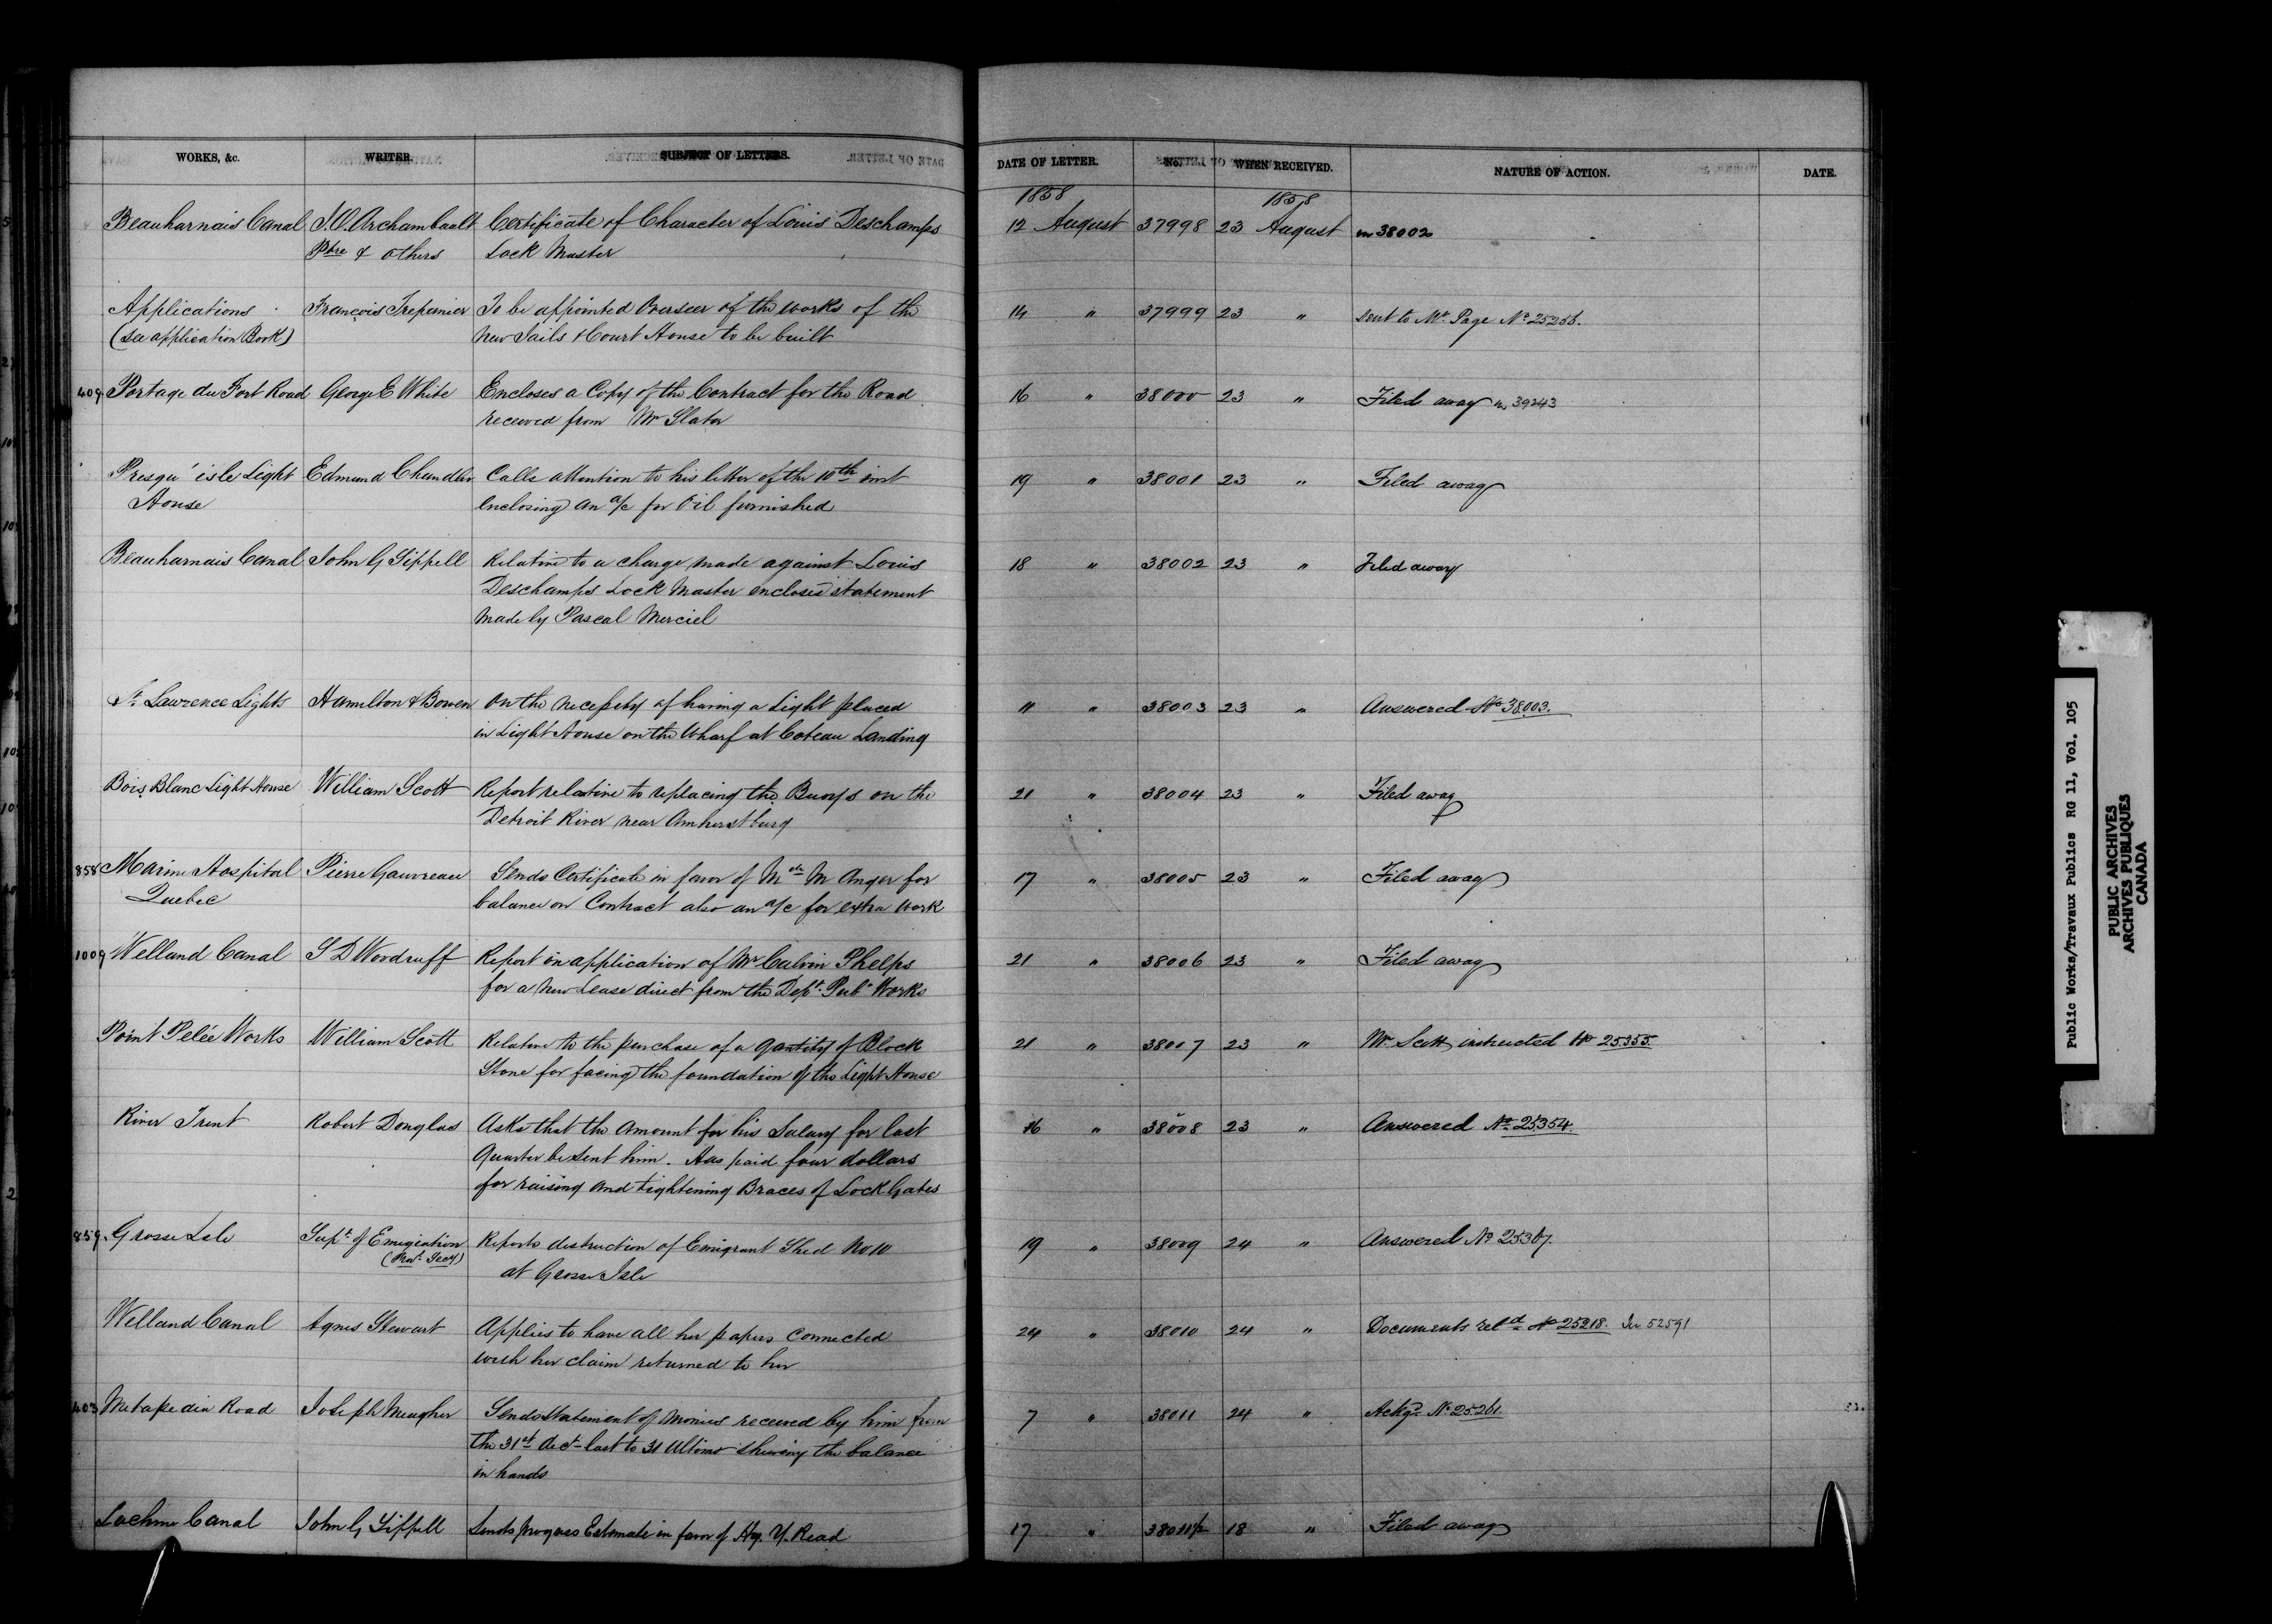 WORKS, &c. WRITER. SUBJECT OF LETTERS. DATE OF LETTER. No. WHEN RECEIVED. NATURE OF ACTION. DATE.
1858 1858
Beauharnais Canal J.O. Archambault Certificate of Character of Louis Deschamps 12 August 37998 23 August in 38002
Ptre & others Lock Master
Applications François Trepanier To be appointed Overseer of the works of the 14 " 37999 23 " Sent to Mr. Page No. 25256.
(See application Book) new Jails & Court House to be built
409 Portage du Fort Road George E White Encloses a Copy of the Contract for the Road 16 " 38000 23 " Filed away in 39243
received from Mr Slator
Presqu'isle Light Edmund Chandler Calls attention to his letter of the 10th inst 19 " 38001 23 " Filed away
House enclosing an a/c for Oil furnished
Beauharnais Canal John G Sippell Relative to a charge made against Louis 18 " 38002 23 " Filed away
Deschamps Lock Master encloses statement
made by Pascal Merciel
St. Lawrence Lights Hamilton & Bowen On the necessity of having a Light placed 11 " 38003 23 " Answered No 38003.
in Light House on the Wharf at Coteau Landing
Bois Blanc Light House William Scott Report relative to replacing the Buoys on the 21 " 38004 23 " Filed away
Detroit River near Amherstburg
858 Marine Hospital Pierre Gauvreau Sends Certificate in favor of M M Anger for 17 " 38005 23 " Filed away
Quebec balance on Contract also an a/c for extra work
1009 Welland Canal S D Woodruff Report on application of Mr Calvin Phelps 21 " 38006 23 " Filed away
for a new Lease direct from the Dept. Pub. Works
Point Pelée Works William Scott Relative to the purchase of a Qantity of Block 21 " 38007 23 " Mr. Scott instructed No 25355.
Stone for facing the foundation of the Light House
River Trent Robert Douglas Asks that the Amount for his Salary for last 16 " 38008 23 " Answered No. 25354.
Quarter be sent him. Has paid four dollars
for raising and tightening Braces of Lock Gates
859. Grosse Isle Supt. of Emigration Reports destruction of Emigrant Shed No 10 19 " 38009 24 " Answered No
(Prov. Secy) at Grosse Isle
Welland Canal Agnes Stewart Applies to have all her papers Connected 24 " 38010 24 " Documents retd No 25218. See 52591
with her claim returned to her
403 Metapedia Road Joseph Meagher Sends Statement of Monies received by him from 7 " 38011 24 " Ackgd. No. 25261.
the 31st Dect last to 31 Ultimo shewing the balance
in hands
Lachine Canal John G Sippell Sends progress Estimate in favor of Hy. Y. Read 17 " 38011½ 18 " Filed away
Public Works/Travaux Publics RG 11, Vol. 105
PUBLIC ARCHIVES
ARCHIVES PUBLIQUES
CANADA